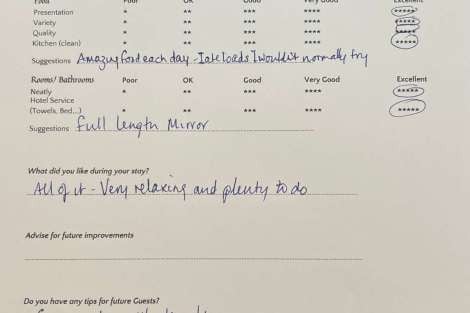 Food Poor OK Good Very Good Excellent
Presentation * ** *** **** *****
Variety * ** *** **** *****
Quality * ** *** **** *****
Kitchen (clean) * ** *** **** *****
Suggestions Amazing food each day - I ate loads I wouldn't normally try
Rooms/ Bathrooms Poor OK Good Very Good Excellent
Neatly * ** *** **** *****
Hotel Service
(Towels, Bed...) * ** *** **** *****
Suggestions Full length Mirror
What did you like during your stay?
All of it - Very relaxing and plenty to do
Advise for future improvements
Do you have any tips for future Guests?